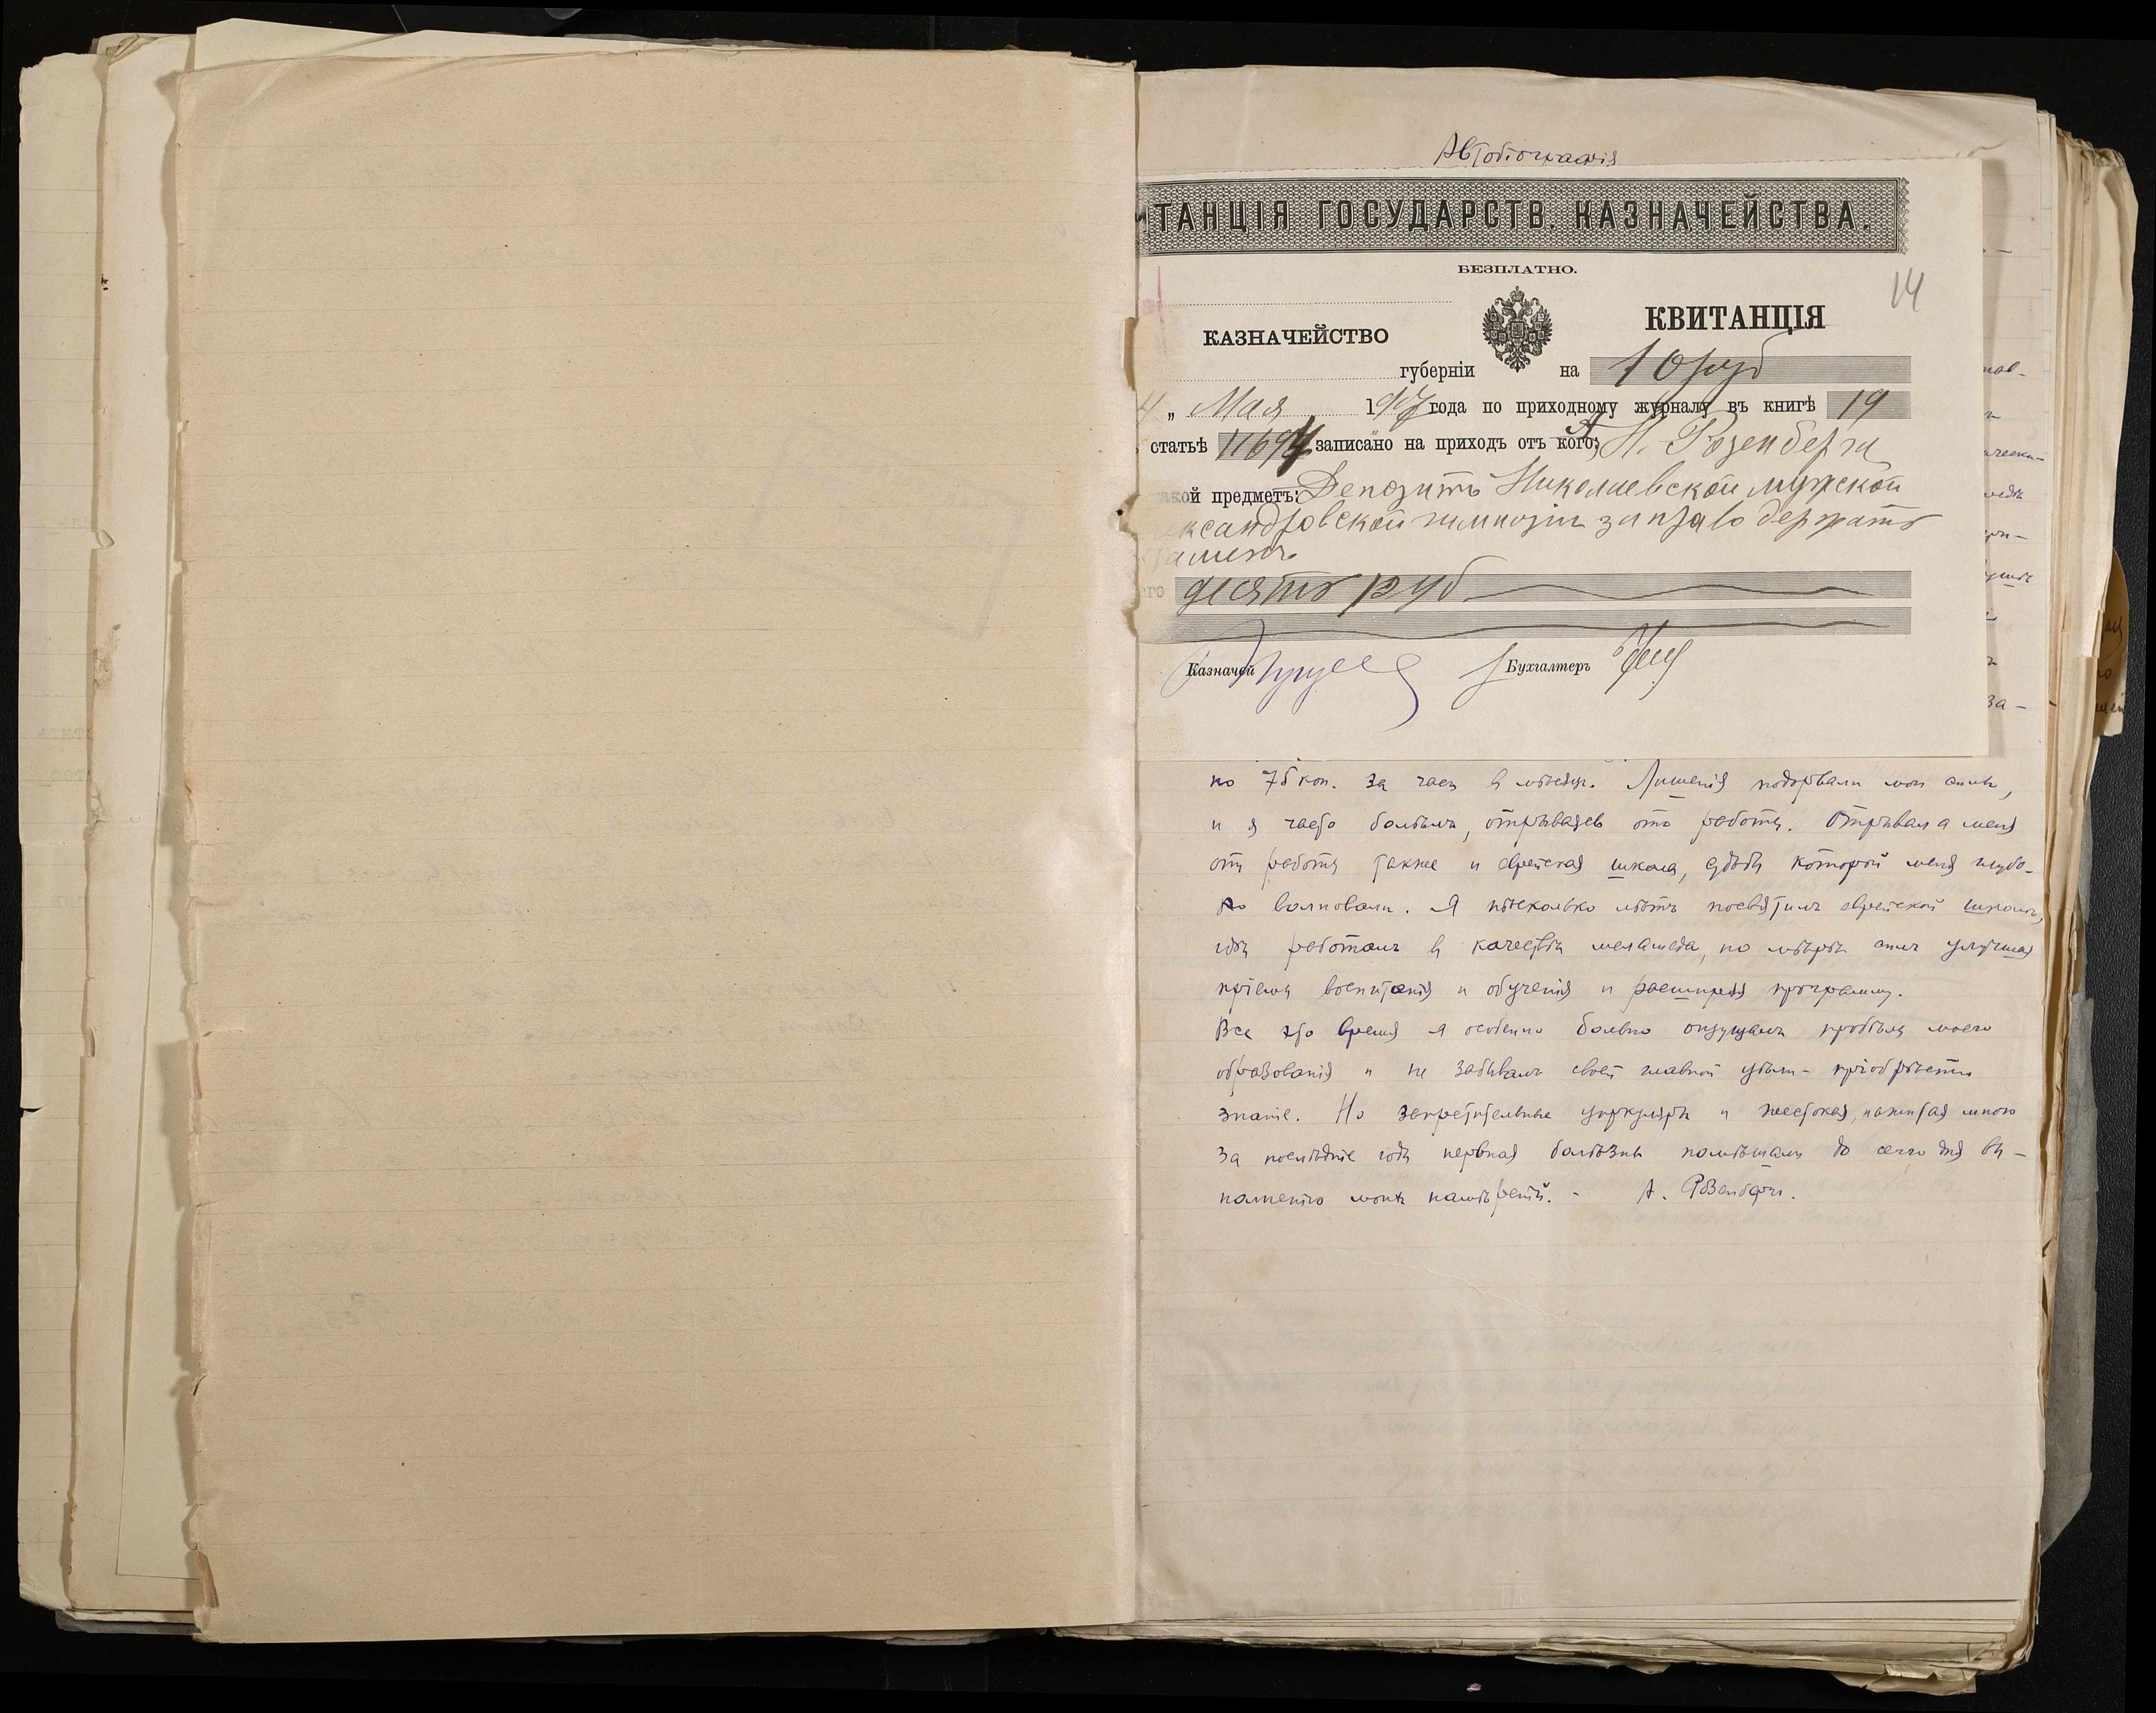 Автобіографія
ИТАНЦІЯ ГОСУДАРСТВ. КАЗНАЧЕЙСТВА.
БЕЗПЛАТНО.
14
КАЗНАЧЕЙСТВО
КВИТАНЦІЯ
губерніи на 10 руб
„ Мая 1907 года по приходному журналу въ книгѣ 19
статьѣ 11694 записано на приходъ отъ кого: А. Н. Розенберга
акой предметъ: Депозитъ Николаевской мужской
ксандровской гимназіи за право держать
замень
го десять руб
Казначей
Бухгалтеръ
по 75 коп. за часъ в мѣсяцъ. Лишенія подорвали мои силы,
и я часто болѣлъ, отрываясь отъ работы. Отрывала меня
отъ работы также и еврейская школа, судьбы которой меня глубо-
ко волновали. Я нѣсколько лѣтъ посвятилъ еврейской школѣ,
гдѣ работалъ в качествѣ меламеда, по мѣрѣ силъ улучшая
пріемы воспитанія и обученія и расширяя программу.
Все это время я особенно больно ощущалъ пробѣлы моего
образованія и не забывалъ своей главной цѣли - пріобрѣсти
знаніе. Но запретительные циркуляры и жестокая, нажитая мною
за послѣдніе годы нервная болѣзнь помѣшали до сего дня вы-
полненію моихъ намѣреній. - А. Розенбергъ.